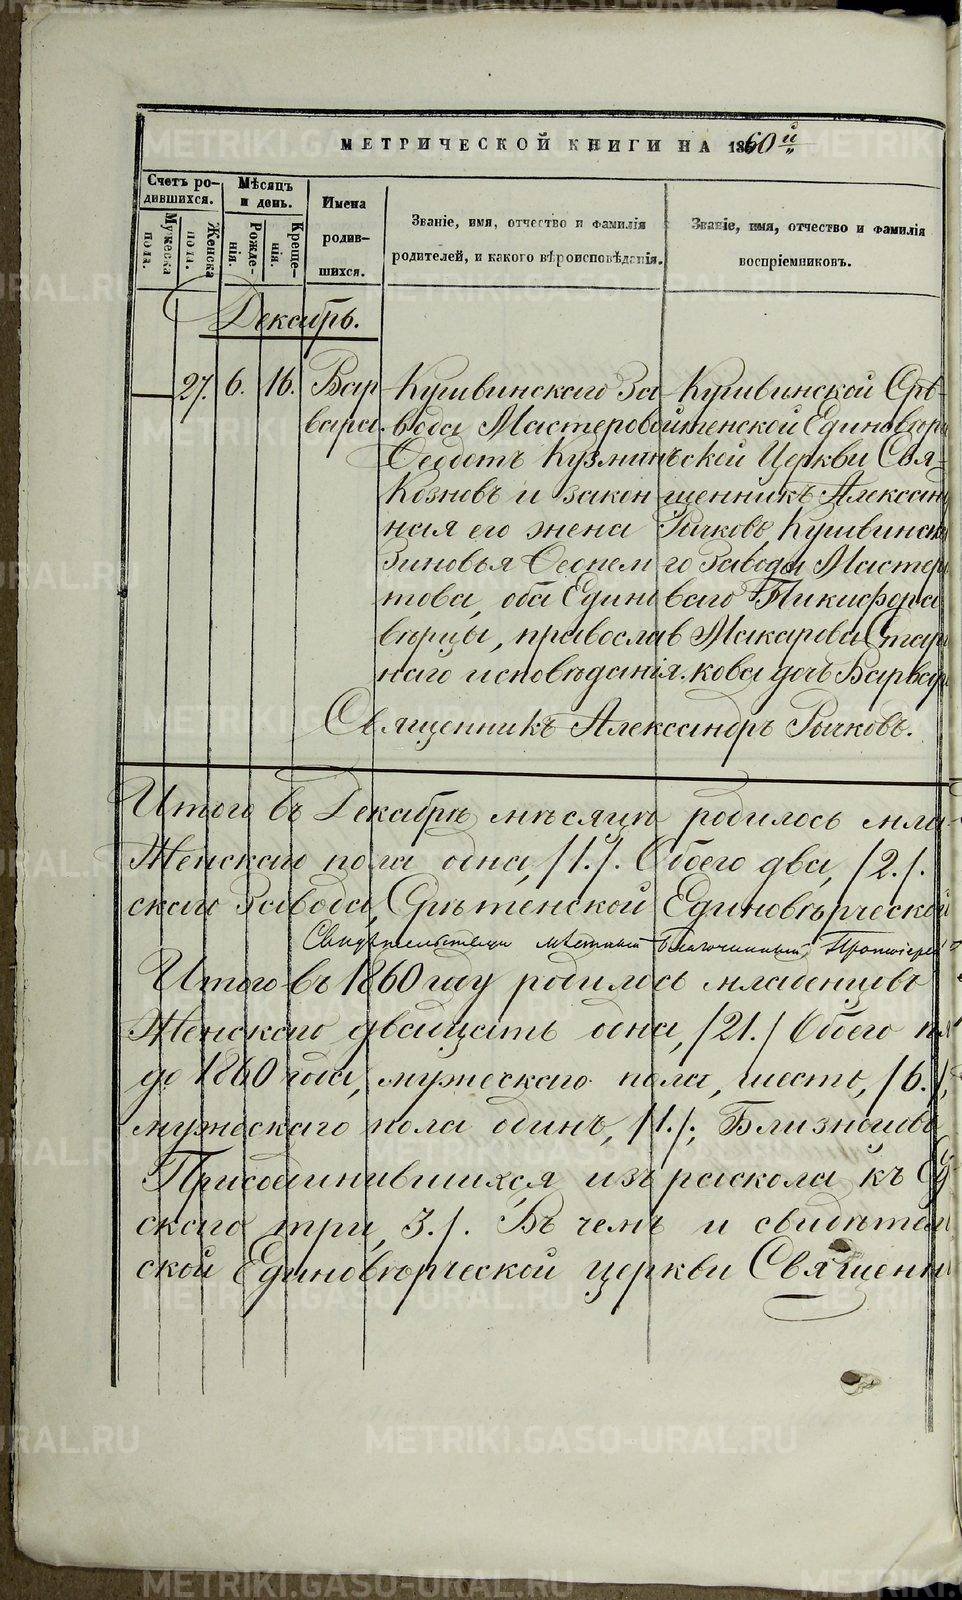 МЕТРИЧЕСКОЙ КНИГИ НА 1860й
Счетъ ро-
дившихся.
Мужеска
пола.
Женска
пола.
Мѣсяцъ
и день.
Рожде-
нія.
Креще-
нія.
Имена
родив-
шихся.
Званіе, имя, отчество и фамилія
родителей, и какого вѣроисповѣданія.
Званіе, имя, отчество и фамилія
воспріемниковъ.
Декабрь.
27. 6. 16.
Вар
вара.
Кушвинскаго За
вода Мастеровой
Ѳеодотъ Кузминъ
Козновъ и закон
ная его жена
Зиновья Ѳеонем
това, оба Едино
вѣрцы, православ
наго исповѣданія.
Кушвинской Срѣ-
тенской Единовѣр
ской Церкви Свя-
щенникъ Александ
Рычковъ, Кушвинска
го Завода Мастеро
ваго Никифора
Макарова Стар
кова дочь Варвар
Священникъ Александръ Рычковъ.
Итого въ Декабрѣ мѣсяцѣ родилось мла-
Женскаго пола одна, /1./. Обоего два, /2./.
скаго Завода, Срѣтенской Единовѣрческой
Свидѣтельствовалъ мѣстный Благочинный, Протоіерей
Итого въ 1860 году родилось младенцевъ
Женскаго двадцать одна, /21./ Обоего п
до 1860 года, мужескаго пола, шесть, /6./,
мужескаго пола одинъ, /1./; Близнецовъ
Присоединившихся изъ раскола къ Е
скаго три, 3./. Въ чемъ и свидѣтел
ской Единовѣрческой церкви Священн
METRIKI.GASO-URAL.RU